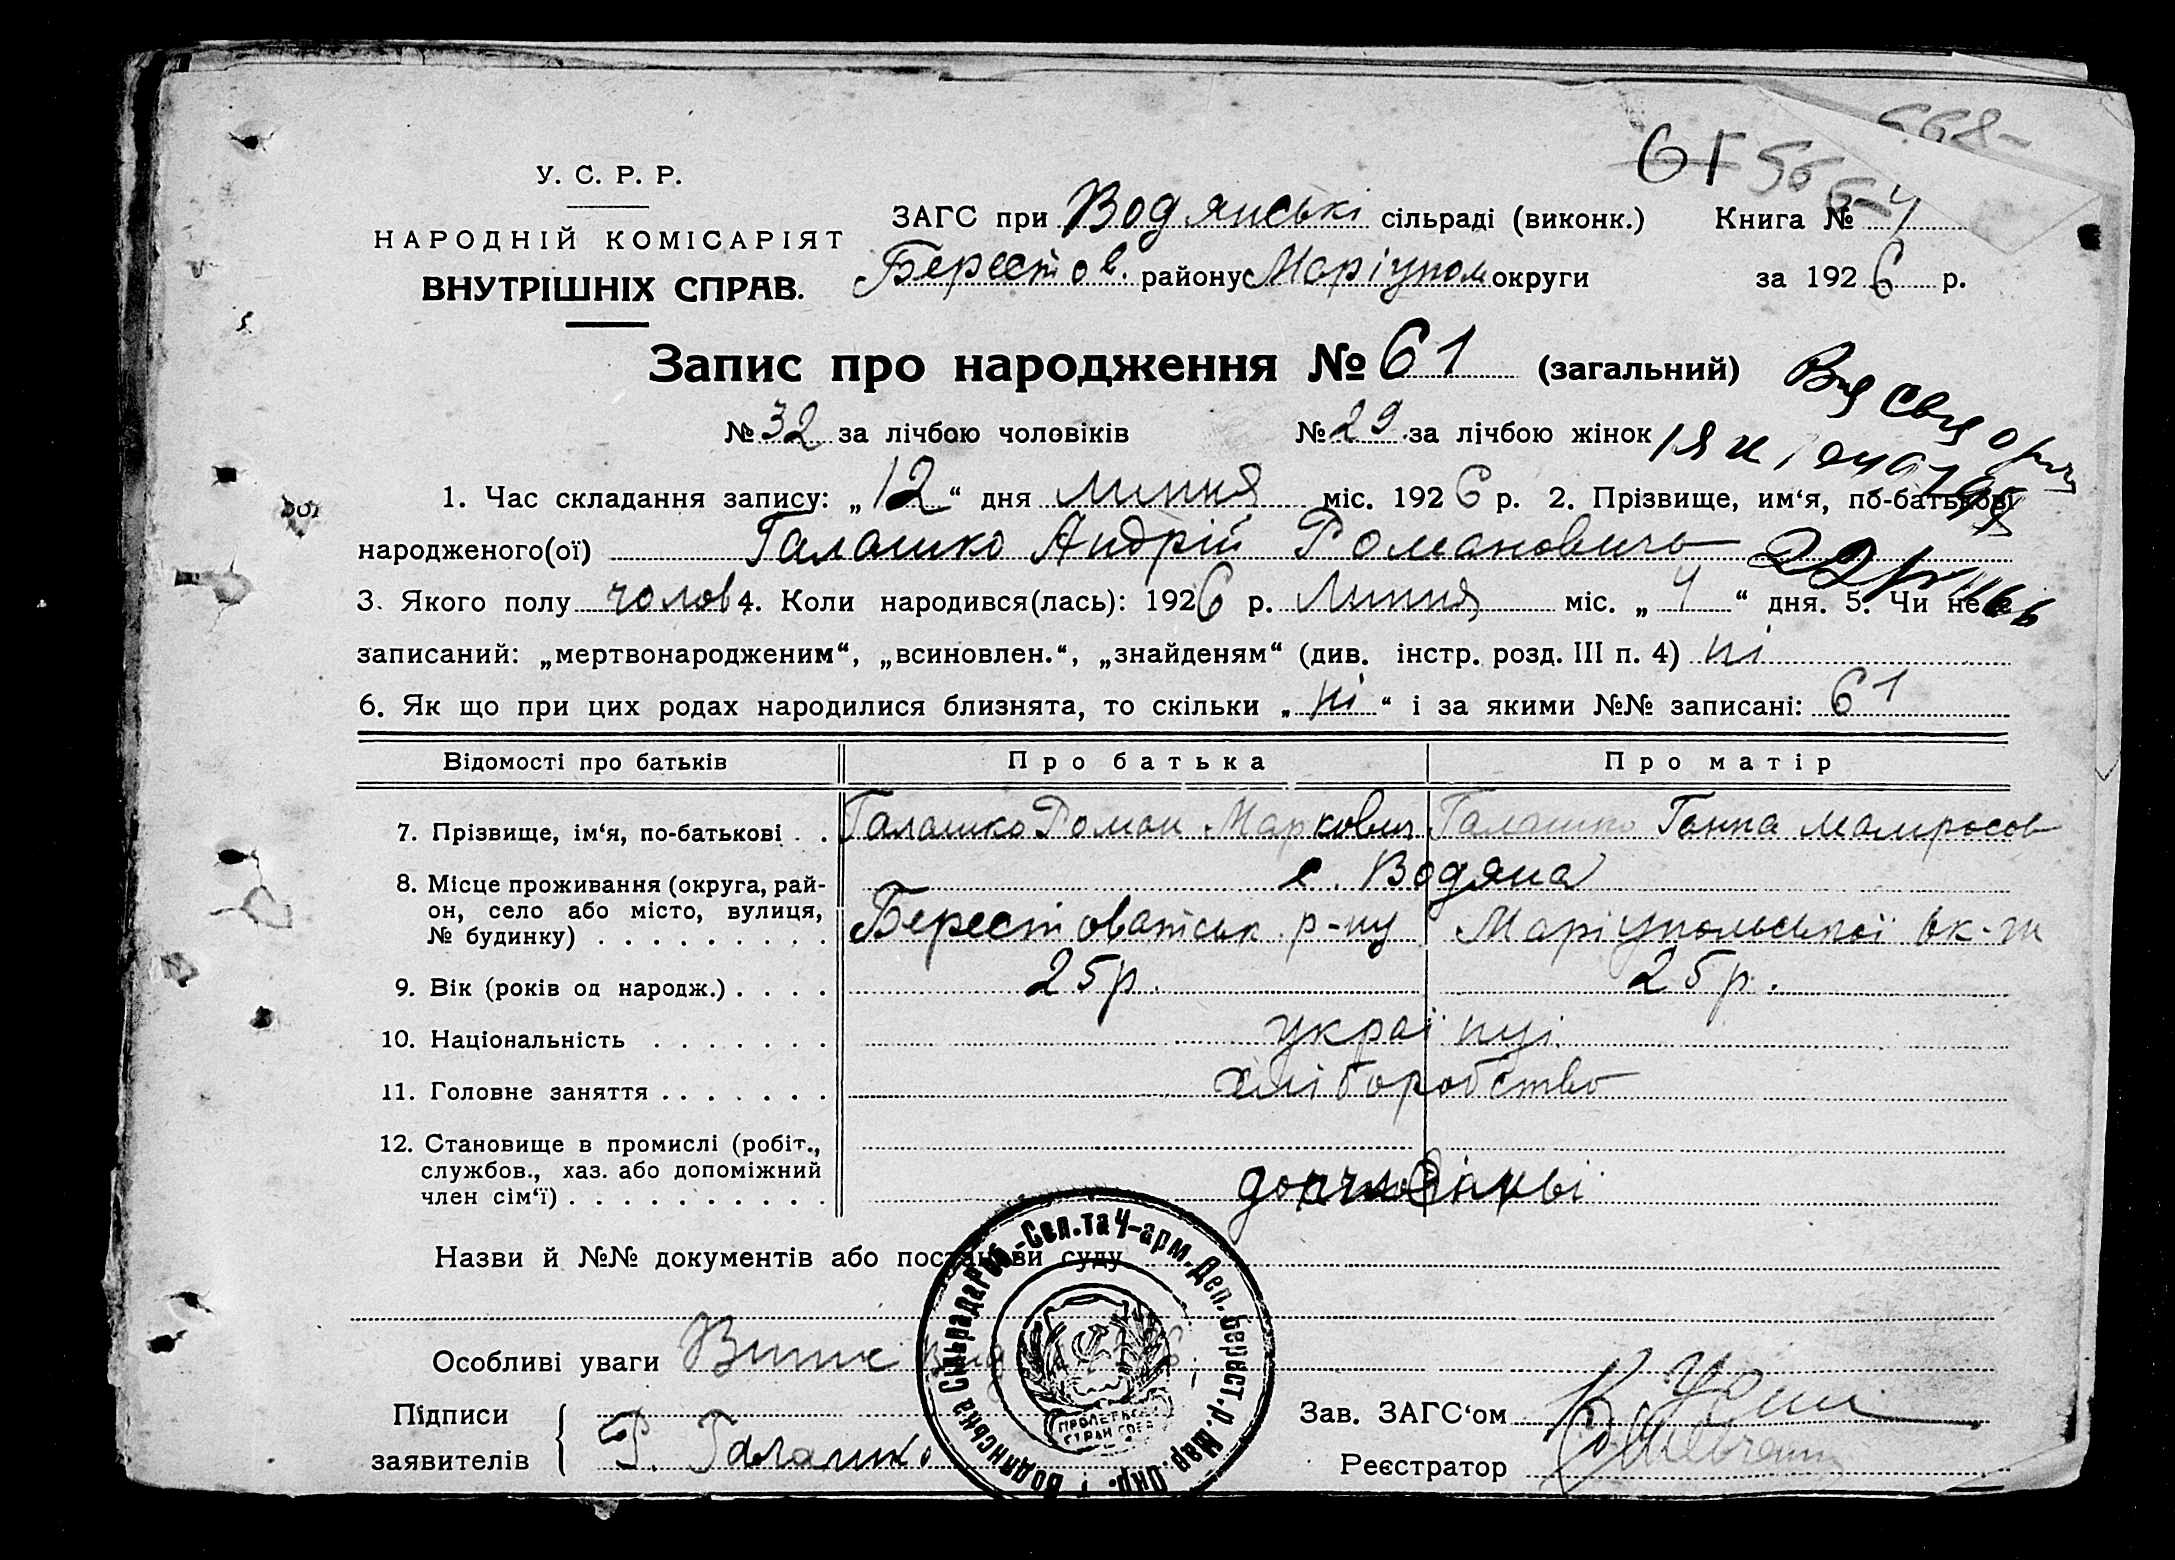 У. С. Р. Р.
НАРОДНІЙ КОМІСАРІЯТ
ВНУТРІШНІХ СПРАВ.
61
ЗАГС при Водянські сільраді (виконк.) Книга №
Берестов. району Маріупол округи за 1926 р.
Запис про народження № 61 (загальний)
№ 32 за лічбою чоловіків № 29 за лічбою жінок
1. Час складання запису: „12“ дня липня міс. 1926 р. 2. Прізвище, им‘я, по-батькові
народженого(ої) Галашко Андрій Романович
3. Якого полу чолов 4. Коли народився(лась): 1926 р. Липня міс. „4“ дня. 5. Чи не
записаний: „мертвонародженим“, „всиновлен.“, „знайденям“ (див. інстр. розд. III п. 4) ні
6. Як що при цих родах народилися близнята, то скільки „ні“ і за якими №№ записані: 61
Відомості про батьків Про батька Про матір
7. Прізвище, ім‘я, по-батькові . . Галашко Роман Маркович Галашко Ганна
8. Місце проживання (округа, рай- с. Водяна
он, село або місто, вулиця,
№ будинку) . . . . . . . . . Берестоватськ р-ну Маріупольської
9. Вік (років од народж.) . . . . 25 р. 25 р.
10. Національність . . . . . . . українці
11. Головне заняття . . . . . . . хліборобство
12. Становище в промислі (робіт.,
службов., хаз. або допоміжний
член сім‘ї) . . . . . . . . . .
Назви й №№ документів або постанови суду
Особливі уваги
Підписи
заявителів Р. Галашко
Зав. ЗАГС‘ом
Реєстратор
Водянська Сільрада Роб.-Сел. та Ч-арм. Деп. Берест. р. Мар. Окр.